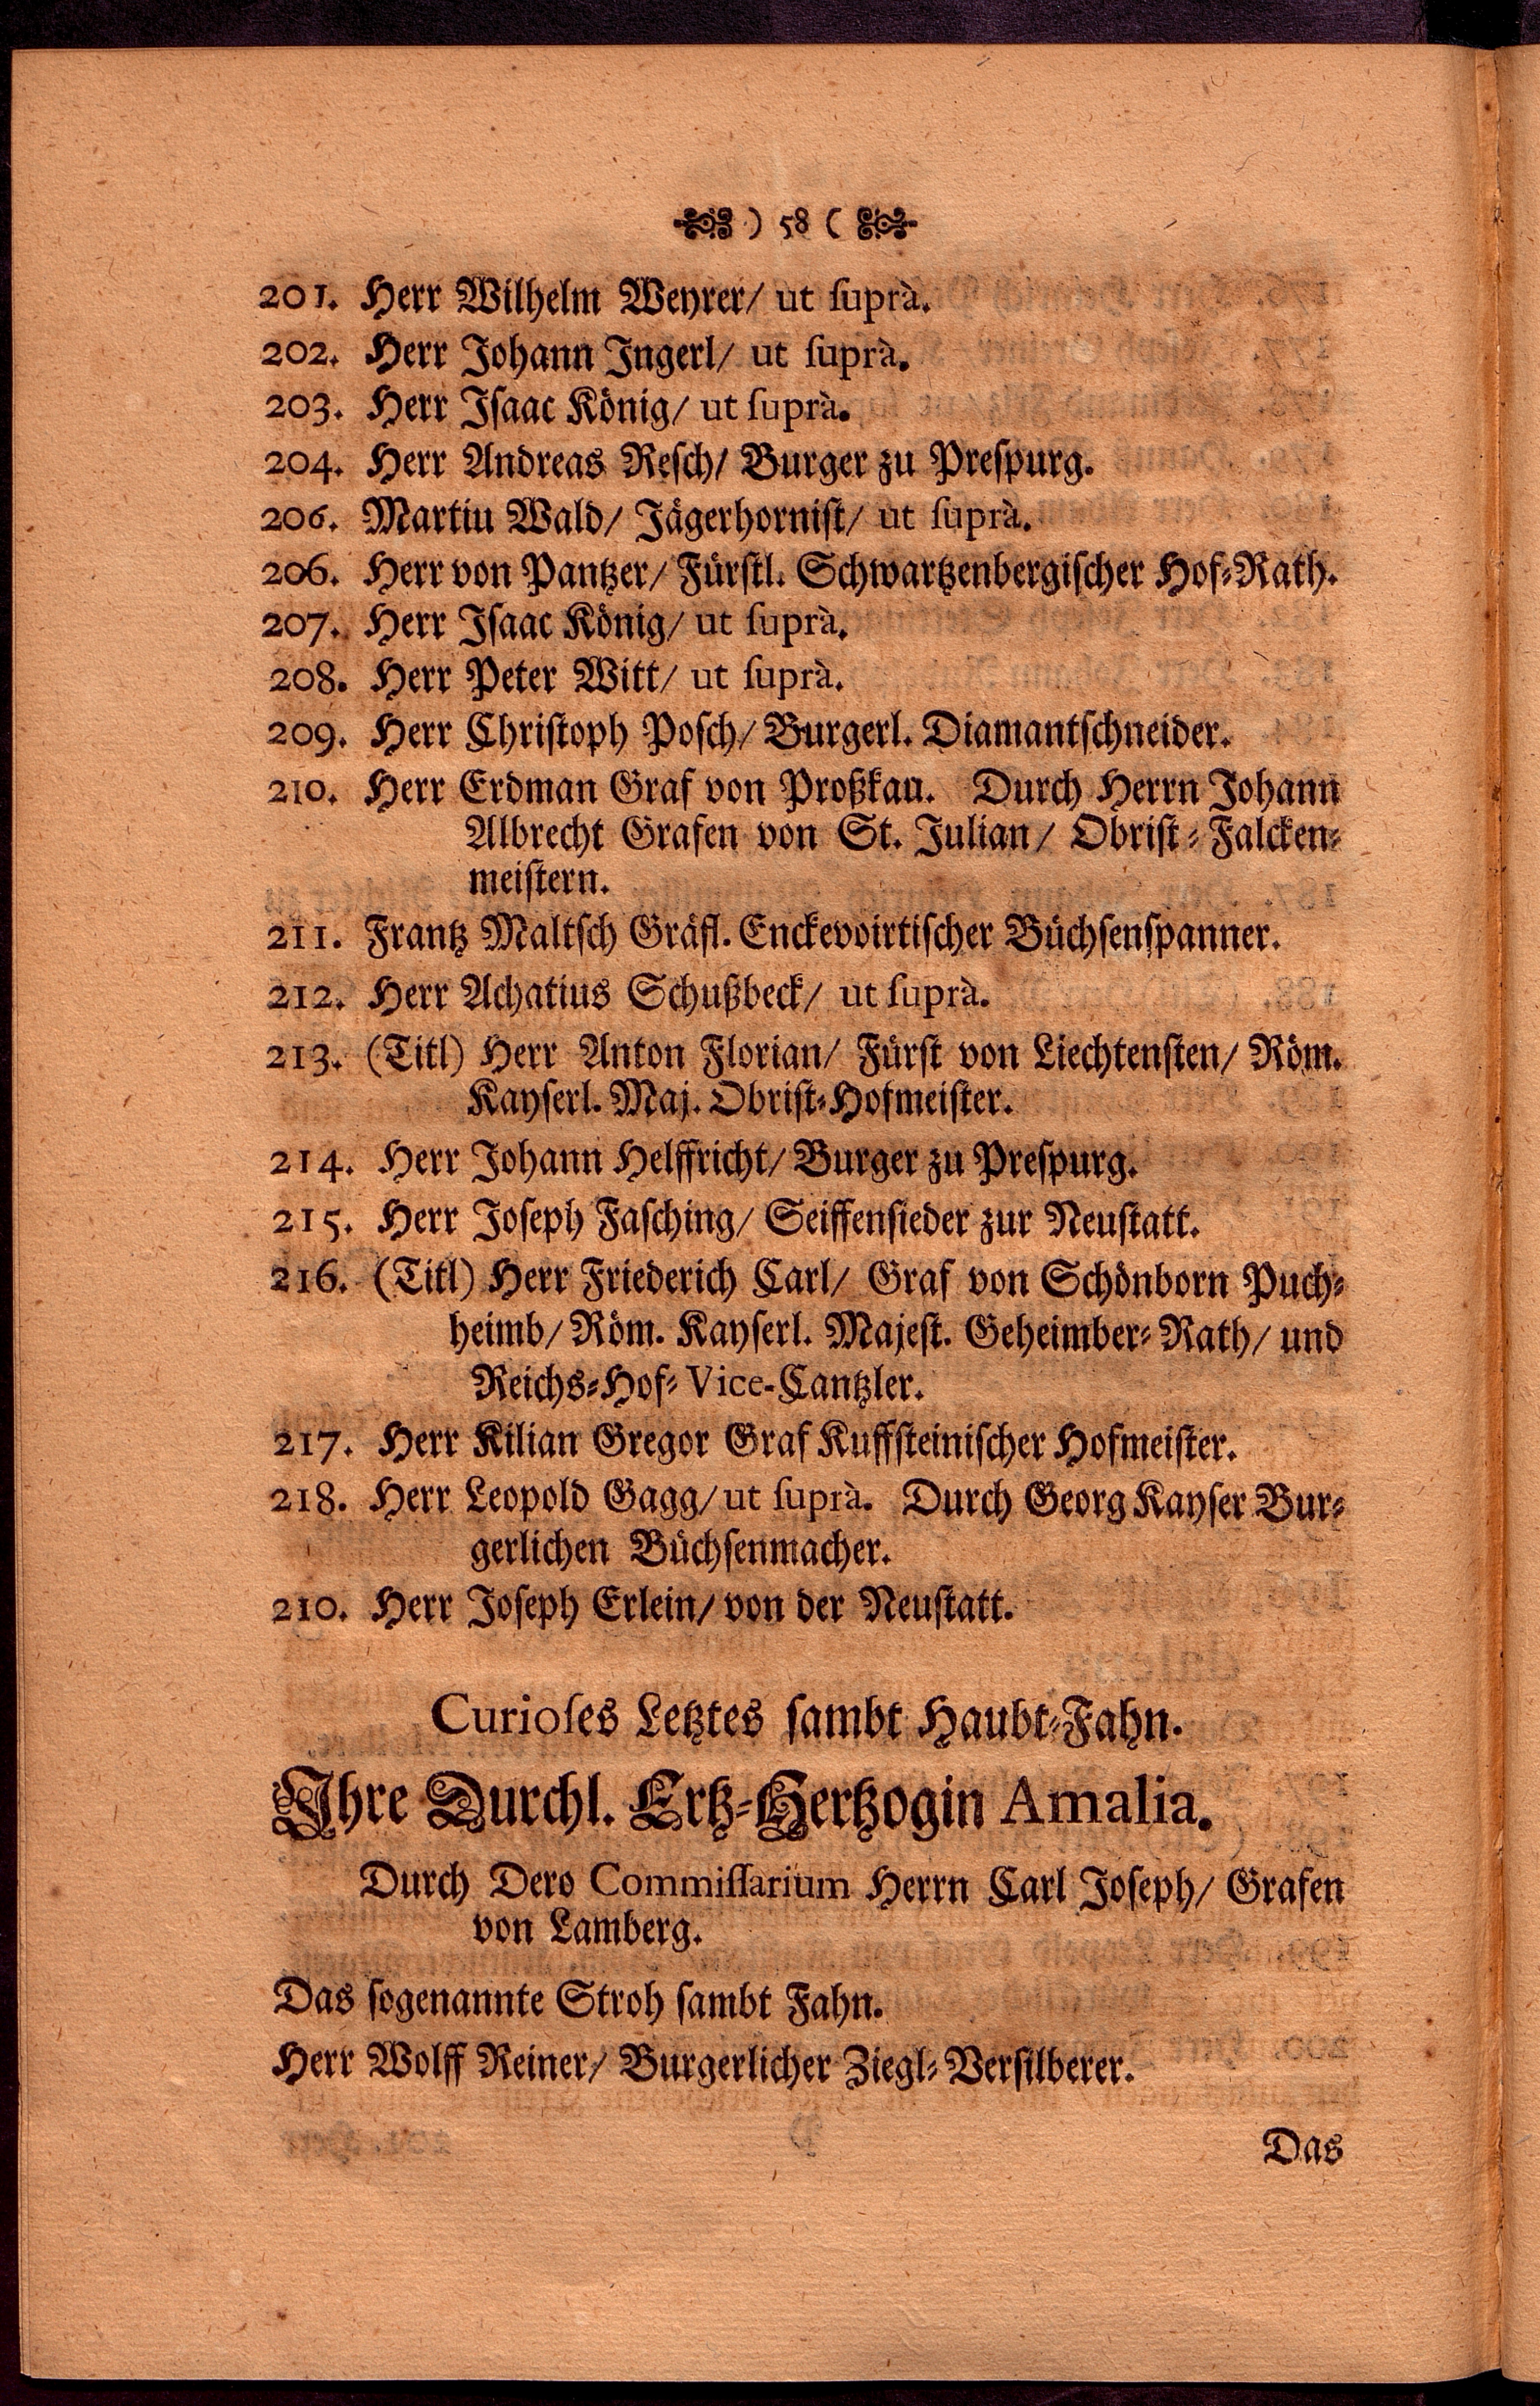 ) 58 (
201. Herr Wilhelm Weyrer/ ut suprà.
202. Herr Johann Ingerl/ ut suprà.
203. Herr Isaac König/ ut suprà.
204. Herr Andreas Resch/ Burger zu Prespurg.
206. Martiu Wald/ Jägerhornist/ ut suprà.
206. Herr von Pantzer/ Fürstl. Schwartzenbergischer Hof-Rath.
207. Herr Isaac König/ ut suprà.
208. Herr Peter Witt/ ut suprà.
209. Herr Christoph Posch/ Burgerl. Diamantschneider.
210. Herr Erdman Graf von Proßkau. Durch Herrn Johann
Albrecht Grafen von St. Julian/ Obrist-Falcken-
meistern.
211. Frantz Maltsch Gräfl. Enckevoirtischer Büchsenspanner.
212. Herr Achatius Schußbeck/ ut suprà.
213. (Titl) Herr Anton Florian/ Fürst von Liechtensten/ Röm.
Kayserl. Maj. Obrist-Hofmeister.
214. Herr Johann Helffricht/ Burger zu Prespurg.
215. Herr Joseph Fasching/ Seiffensieder zur Neustatt.
216. (Titl) Herr Friederich Carl/ Graf von Schönborn Puch-
heimb/ Röm. Kayserl. Majest. Geheimber-Rath/ und
Reichs-Hof-Vice-Cantzler.
217. Herr Kilian Gregor Graf Kuffsteinischer Hofmeister.
218. Herr Leopold Gagg/ ut suprà. Durch Georg Kayser Bur-
gerlichen Büchsenmacher.
210. Herr Joseph Erlein/ von der Neustatt.
Curioses Letztes sambt Haubt-Fahn.
Ihre Durchl. Ertz-Hertzogin Amalia.
Durch Dero Commissarium Herrn Carl Joseph/ Grafen
von Lamberg.
Das sogenannte Stroh sambt Fahn.
Herr Wolff Reiner/ Burgerlicher Ziegl-Versilberer.
Das